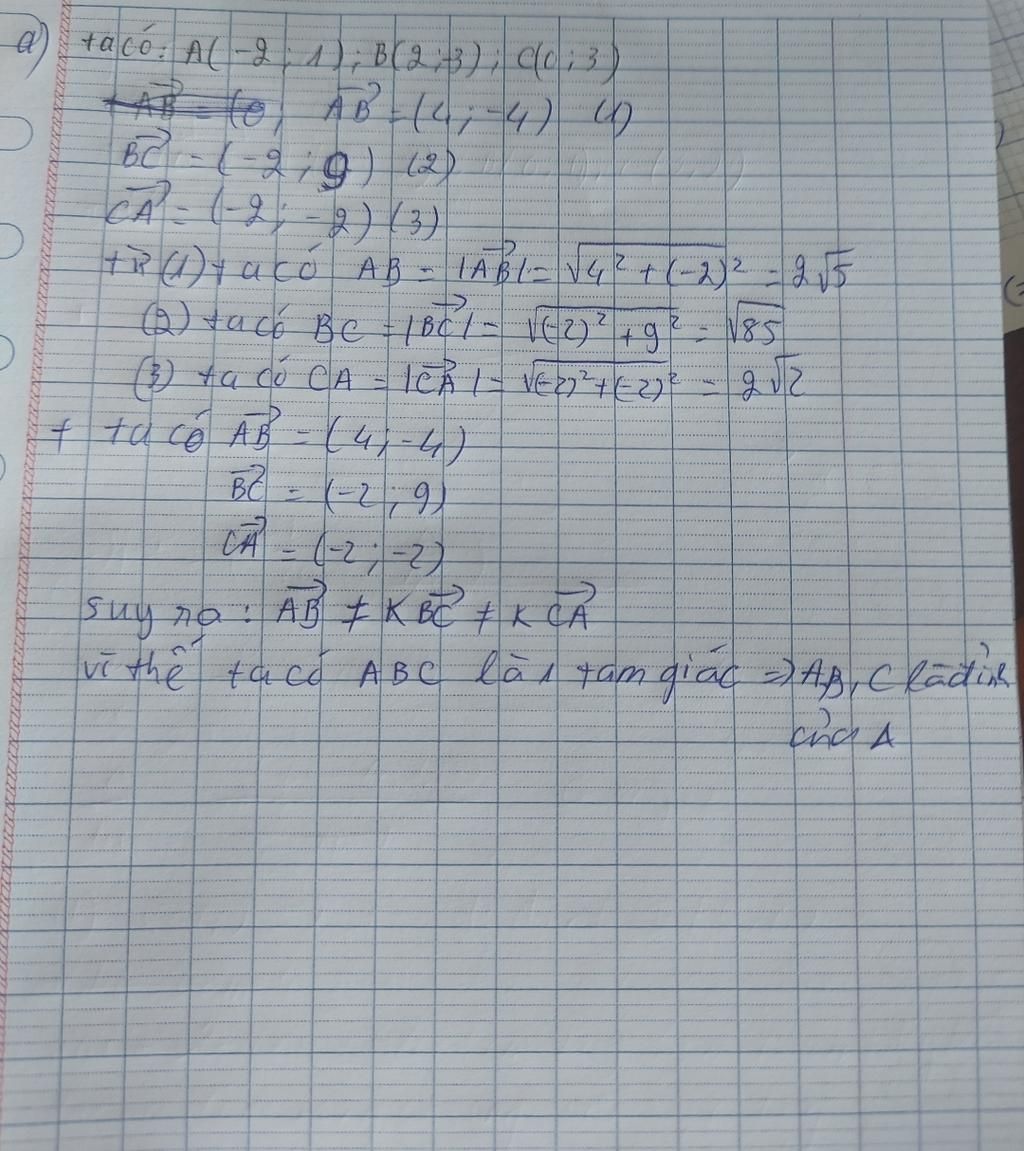 a) ta có: A(-2; 1); B(2;-3); C(0; 3)
AB = (0; AB = (4; -4) (1)
BC = (-2; 9) (2)
CA = (-2; -2) (3)
(1) ta có AB = |AB| = √4² + (-2)² = 2√5
(2) ta có BC = |BC| = √(-2)² + 9² = √85
(3) ta có CA = |CA| = √(-2)² + (-2)² = 2√2
+ ta có AB = (4; -4)
BC = (-2; 9)
CA = (-2; -2)
suy ra: AB ≠ K BC ≠ K CA
vì thế ta có ABC là 1 tam giác => A,B,C là đỉnh
của Δ